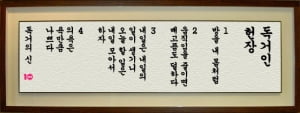 독거인
헌장
1
방을 내 몸처럼
2
움직임을 줄이면
배고픔도 덜하다
3
내일은 내일의
일이 생기니
오늘 할 일은
내일 모아서
하자
4
의욕은
욕만큼
나쁘다
독거의 신